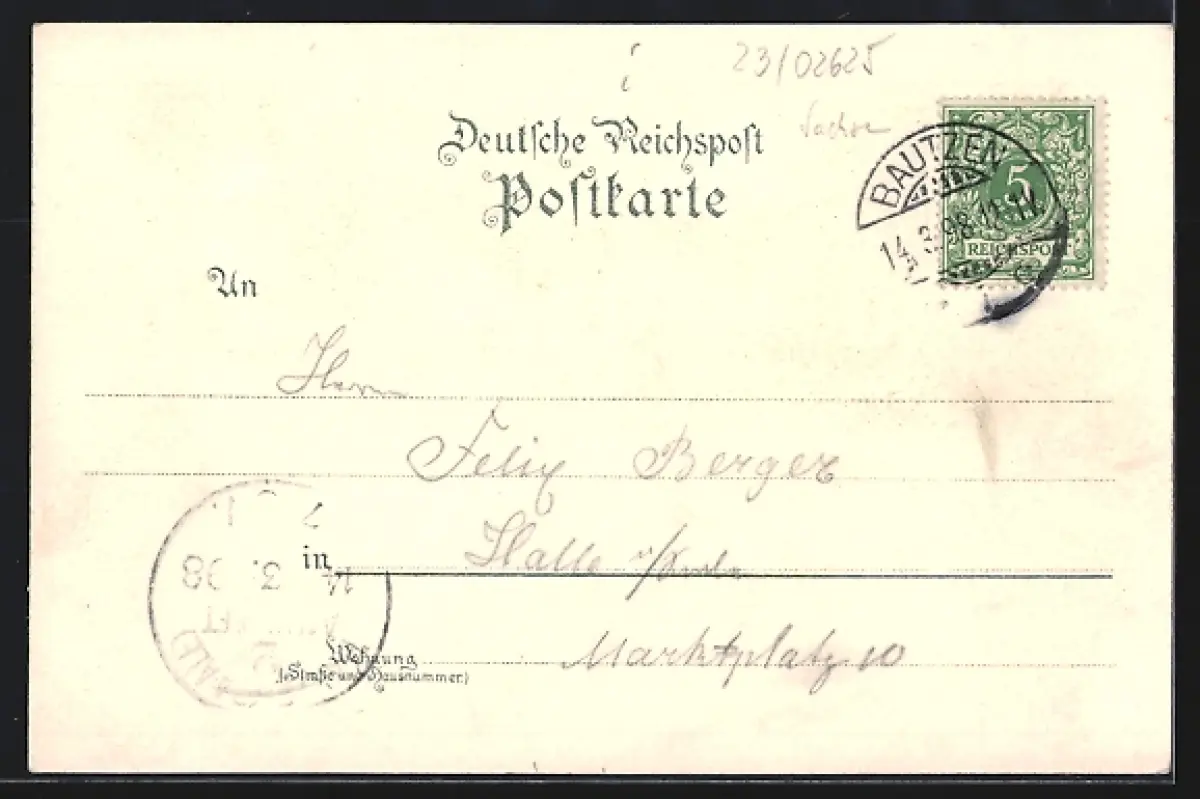 23/02625
Deutsche Reichspost
Postkarte
BAUTZEN
14.3.98.11-12V.
5
REICHSPOST
An
Herrn
Felix Berger
in Halle a/Saale
Wohnung
(Straße und Hausnummer)
Marktplatz 10
14 3. 98